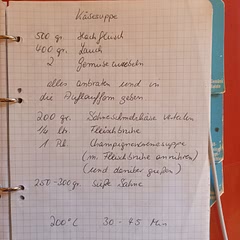 Käsesuppe
500 gr. Hackfleisch
400 gr. Lauch
2 Gemüsezwiebeln
alles anbraten und in
die Auflaufform geben
200 gr. Sahneschmelzkäse verteilen
1/4 ltr. Fleischbrühe
1 Pk. Champignoncremesuppe
(m. Fleischbrühe anrühren)
(und darüber gießen)
250-300 gr. süße Sahne
200°C 30 - 45 Min